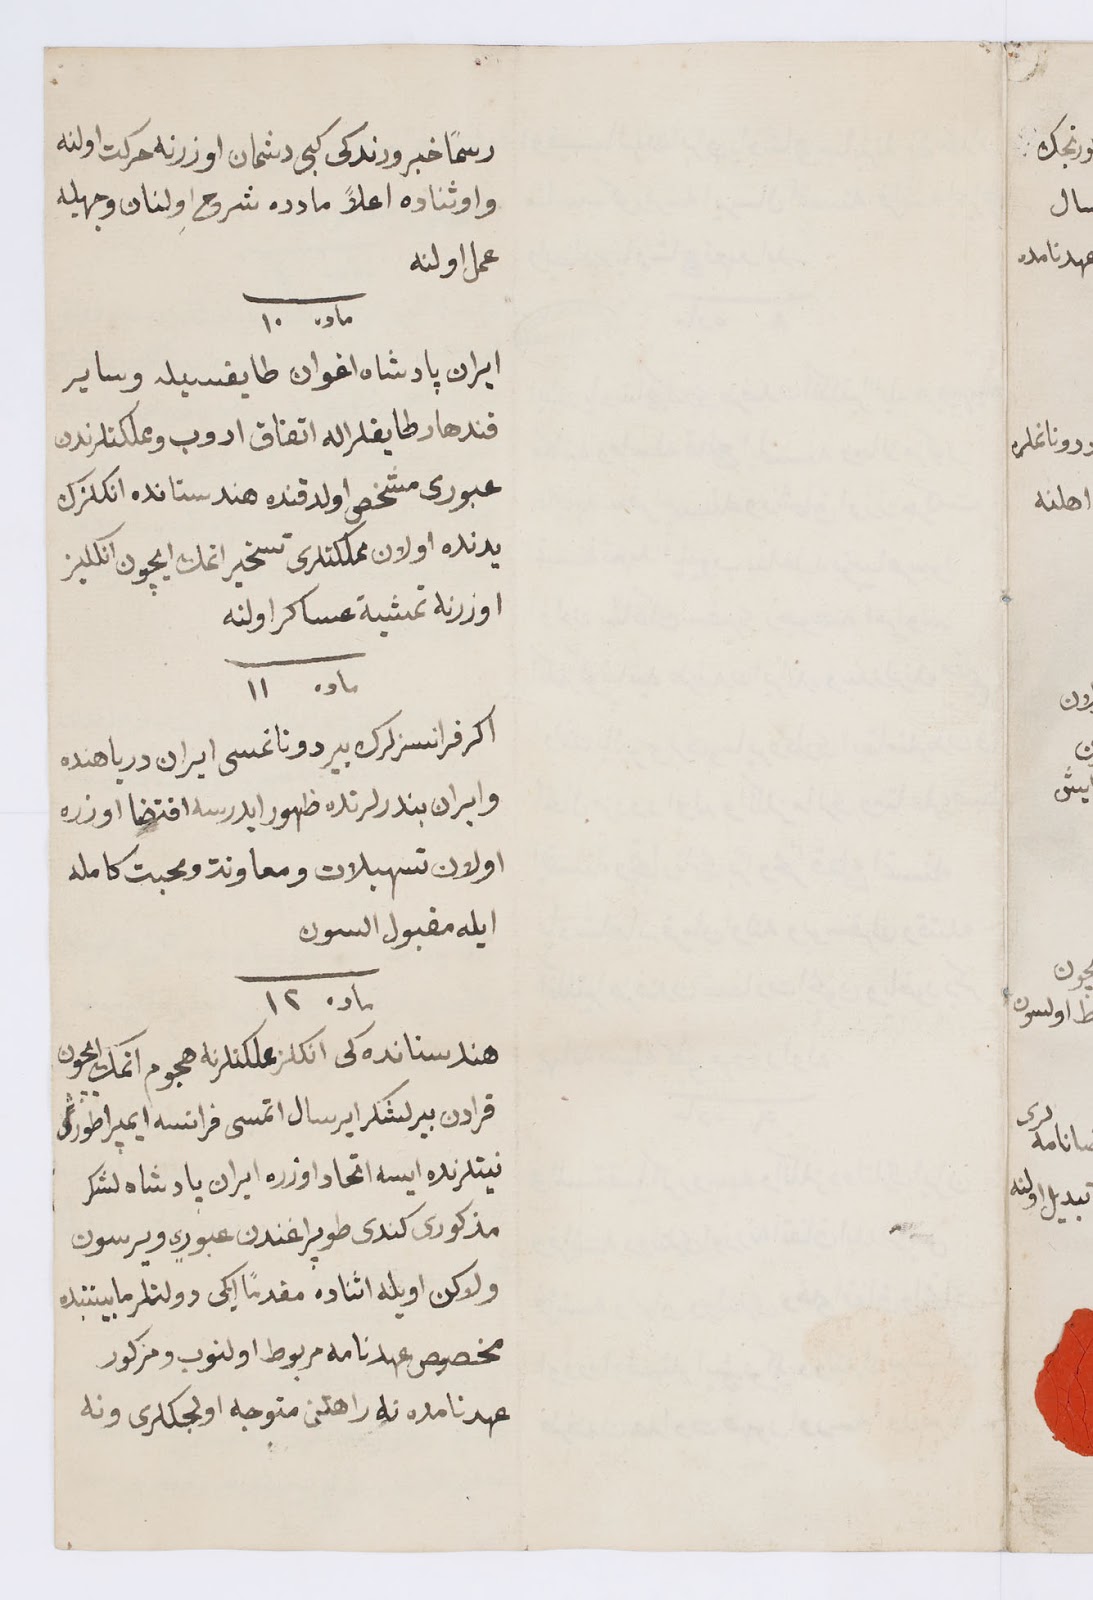 رسمًا خبر ویرندکی کبی دشمان اوزرنه حرکت اولنه
و اوثناده اعلاً مادده شروح اولنان وجهیله
عمل اولنه
ماده ۱۰
ایران پادشاه اغوان طایفسیله وسایر
قندهار طایفلرله اتفاق ادوب و مملکتلرندن
عبوری مشخص اولدقنده هندستانده انکلزک
یدنده اولان مملکتلری تسخیر اتمك ایچون انکلیز
اوزرنه تمشیة عساکر اولنه
ماده ۱۱
اکر فرانسزلرك بیر دوناغسی ایران دریاهنده
و ایران بندرلرنده ظهور ایدرسه اقتضا اوزره
اولان تسهیلات و معاونة و محبت کامله
ایله مقبول السون
ماده ۱۲
هندستانده کی انکلز مملکتلرنه هجوم اتمك ایچون
قرادن بیر لشکر ایرسال اتمسی فرانسه ایمپراطورنڭ
نیتلرنده ایسه اتحاد اوزره ایران پادشاه لشکر
مذکوری کندی طوپراغندن عبوری ویرسون
ولاکن اویله اثناده مقدمًا ایکی دولتلر مابیننده
مخصوص عهدنامه مربوط اولنوب و مزکور
عهدنامده نه راهنن متوجه اولجکلری و نه
سال
عهدنامده
دوناغملره
اهلنه
ایچون
اولسون
تبدیل اولنه